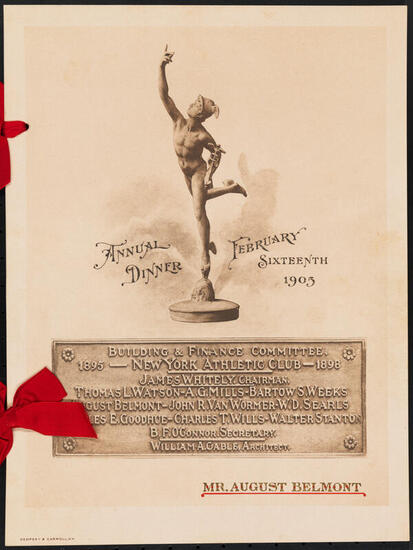 ANNUAL DINNER
FEBRUARY SIXTEENTH 1905
BUILDING & FINANCE COMMITTEE,
1895 — NEW YORK ATHLETIC CLUB — 1898
JAMES WHITELY, CHAIRMAN.
THOMAS L. WATSON - A.G. MILLS - BARTOW S. WEEKS
AUGUST BELMONT - JOHN R. VAN WORMER - W.D. SEARLS
E. GOODHUE - CHARLES T. WILLS - WALTER STANTON
B.F. O'CONNOR, SECRETARY.
WILLIAM A. CABLE, ARCHITECT.
MR. AUGUST BELMONT
DEMPSEY & CARROLL, N.Y.